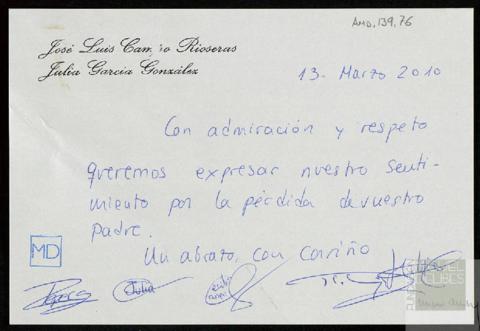 AMD, 139, 76
José Luis Camino Rioseras
Julia García González
13. Marzo 2010
Con admiración y respeto
queremos expresar nuestro senti-
miento por la pérdida de vuestro
padre.
MD
Un abrazo, con cariño
Julia